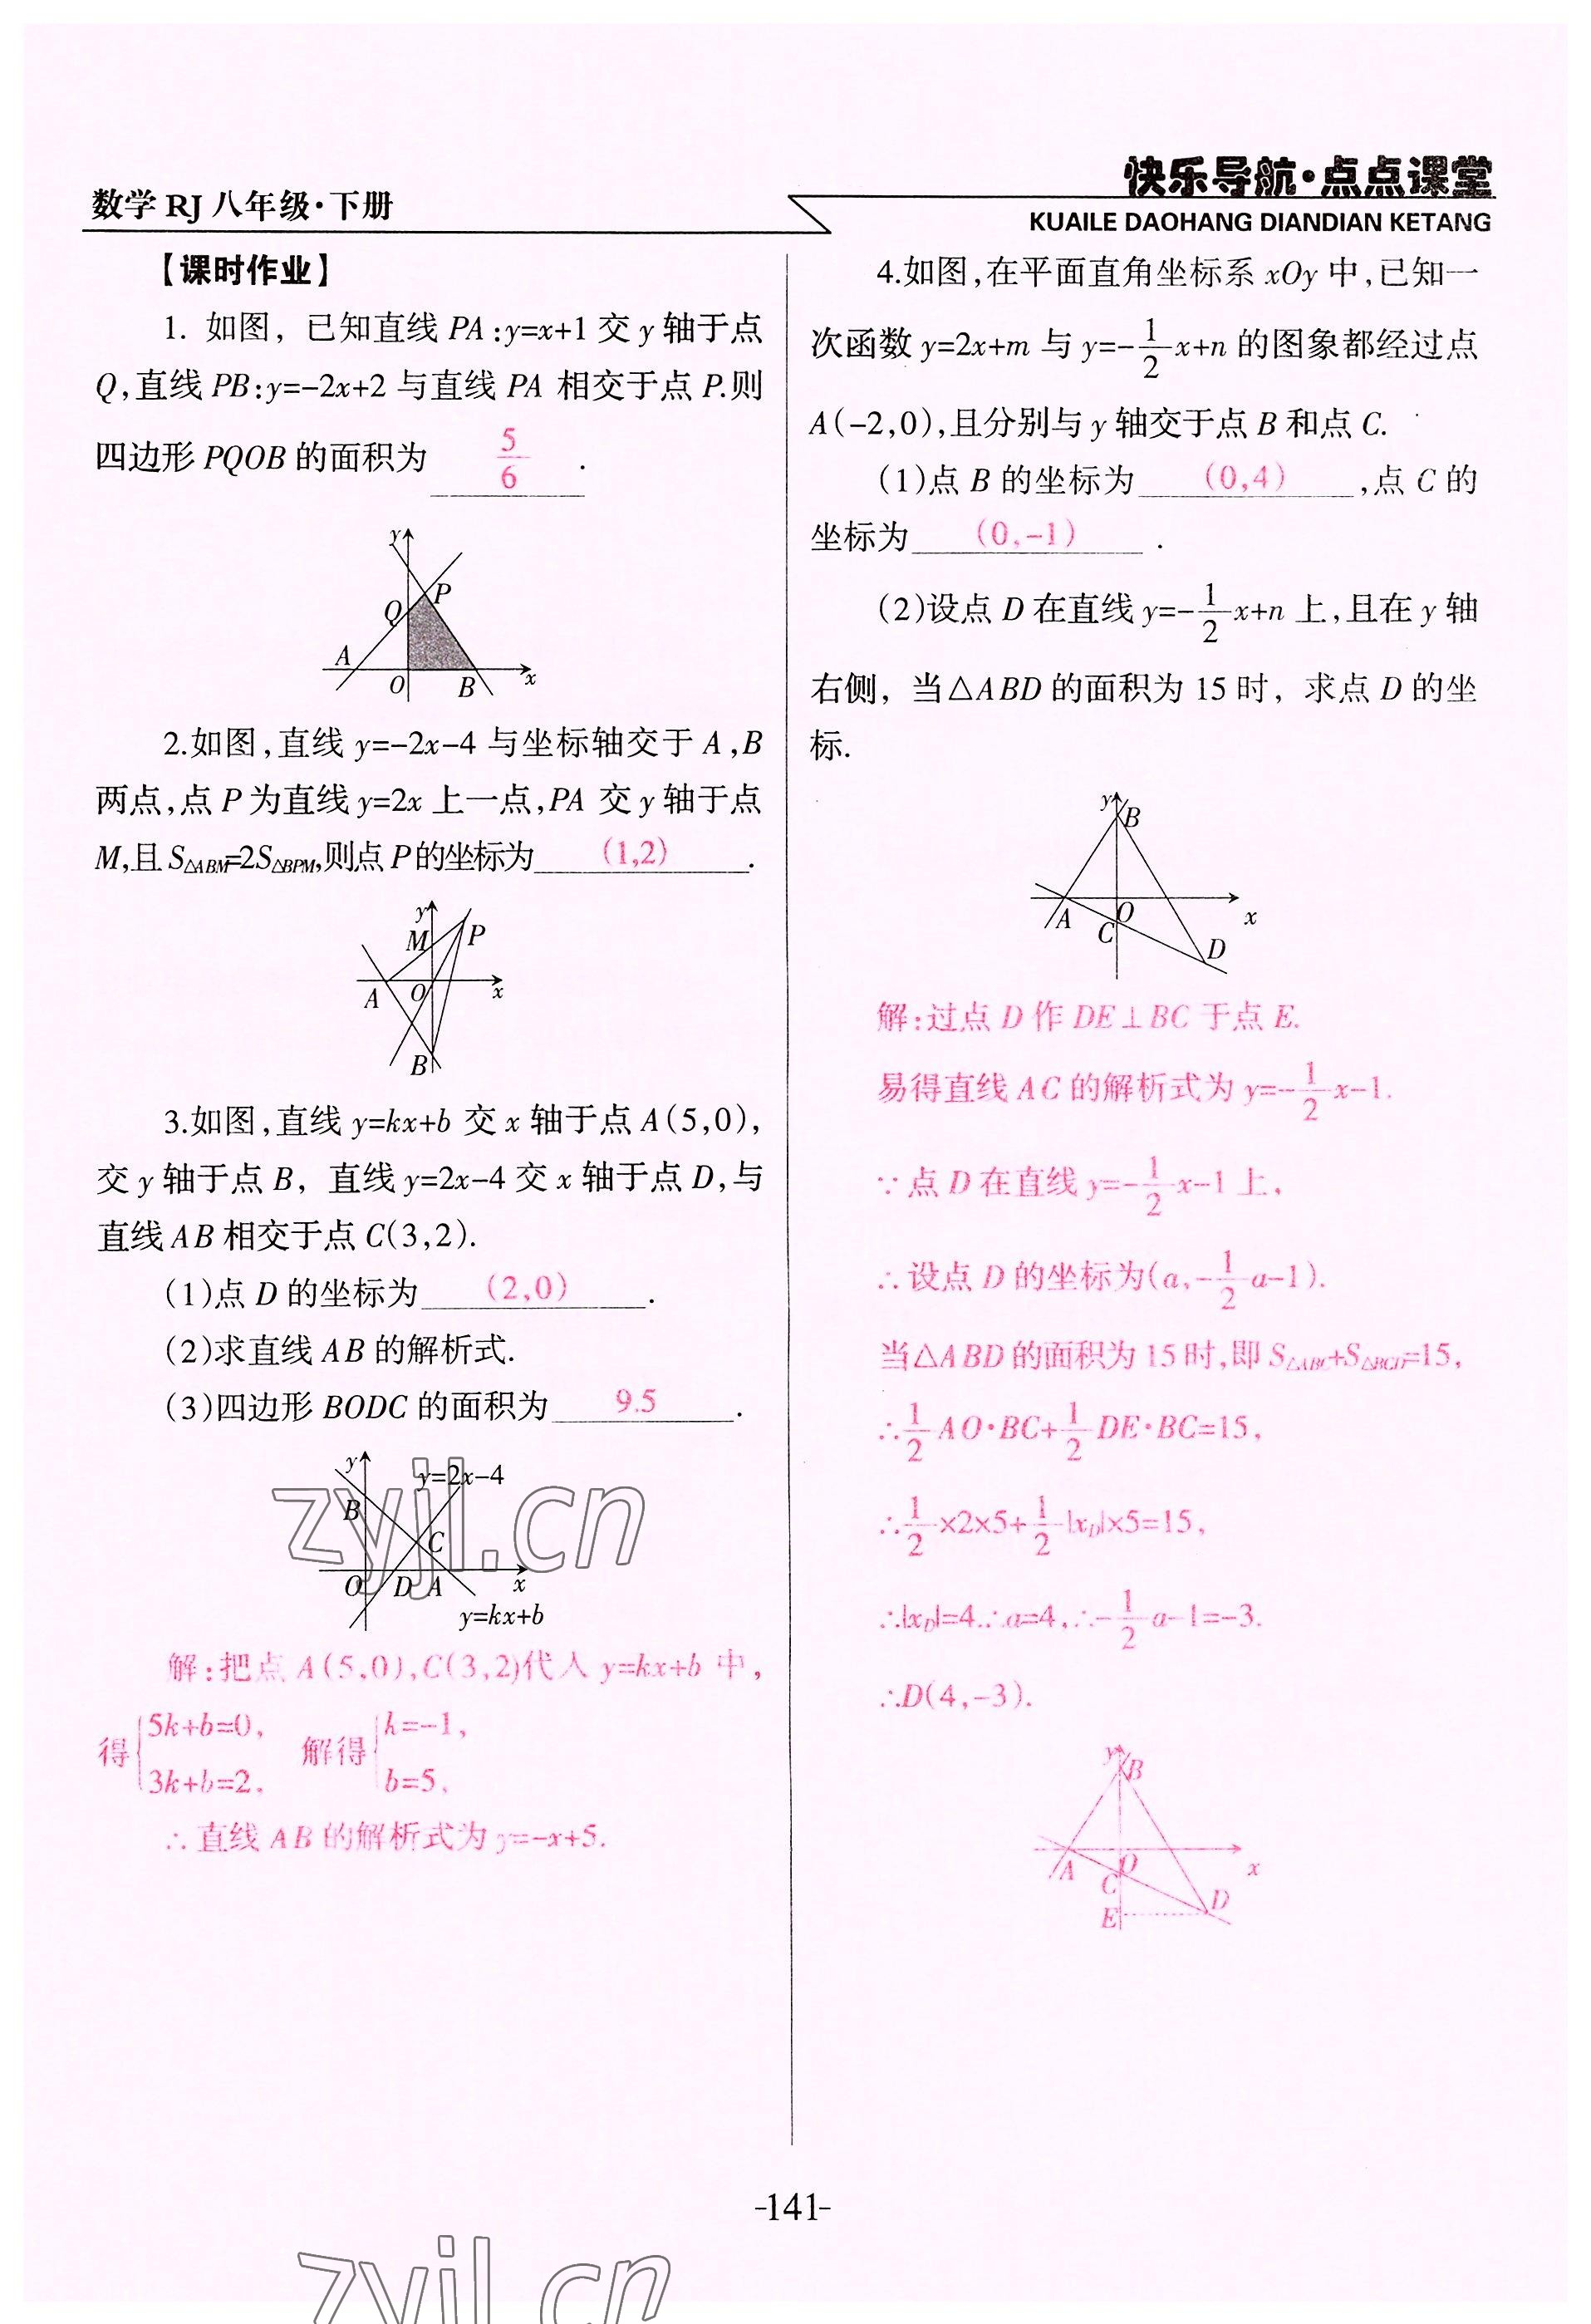 数学 RJ 八年级·下册
快乐导航·点点课堂
KUAILE DAOHANG DIANDIAN KETANG
【课时作业】
1. 如图，已知直线 PA:y=x+1 交 y 轴于点
Q,直线 PB:y=-2x+2 与直线 PA 相交于点 P.则
四边形 PQOB 的面积为 5/6 .
y
Q
P
A
O
B
x
2.如图,直线 y=-2x-4 与坐标轴交于 A,B
两点,点 P 为直线 y=2x 上一点,PA 交 y 轴于点
M,且 S△ABM=2S△BPM,则点 P 的坐标为 (1,2) .
y
M
P
A
O
x
B
3.如图,直线 y=kx+b 交 x 轴于点 A(5,0),
交 y 轴于点 B，直线 y=2x-4 交 x 轴于点 D,与
直线 AB 相交于点 C(3,2).
(1)点 D 的坐标为 (2,0) .
(2)求直线 AB 的解析式.
(3)四边形 BODC 的面积为 9.5 .
y
y=2x-4
B
C
O
D
A
x
y=kx+b
zyjl.cn
解:把点 A(5,0),C(3,2)代入 y=kx+b 中,
得{5k+b=0, 3k+b=2, 解得{k=-1, b=5,
∴直线 AB 的解析式为 y=-x+5.
4.如图,在平面直角坐标系 xOy 中,已知一
次函数 y=2x+m 与 y=-1/2x+n 的图象都经过点
A(-2,0),且分别与 y 轴交于点 B 和点 C.
(1)点 B 的坐标为 (0,4) ,点 C 的
坐标为 (0,-1) .
(2)设点 D 在直线 y=-1/2x+n 上,且在 y 轴
右侧，当△ABD 的面积为 15 时，求点 D 的坐
标.
y
B
A
O
C
x
D
解:过点 D 作 DE⊥BC 于点 E.
易得直线 AC 的解析式为 y=-1/2x-1.
∵点 D 在直线 y=-1/2x-1 上,
∴设点 D 的坐标为(a,-1/2a-1).
当△ABD 的面积为 15 时,即 S△ABC+S△BCD=15,
∴1/2AO·BC+1/2DE·BC=15,
∴1/2×2×5+1/2|xD|×5=15,
∴|xD|=4.∴a=4,∴-1/2a-1=-3.
∴D(4,-3).
y
B
A
O
C
x
D
E
-141-
zyjl.cn